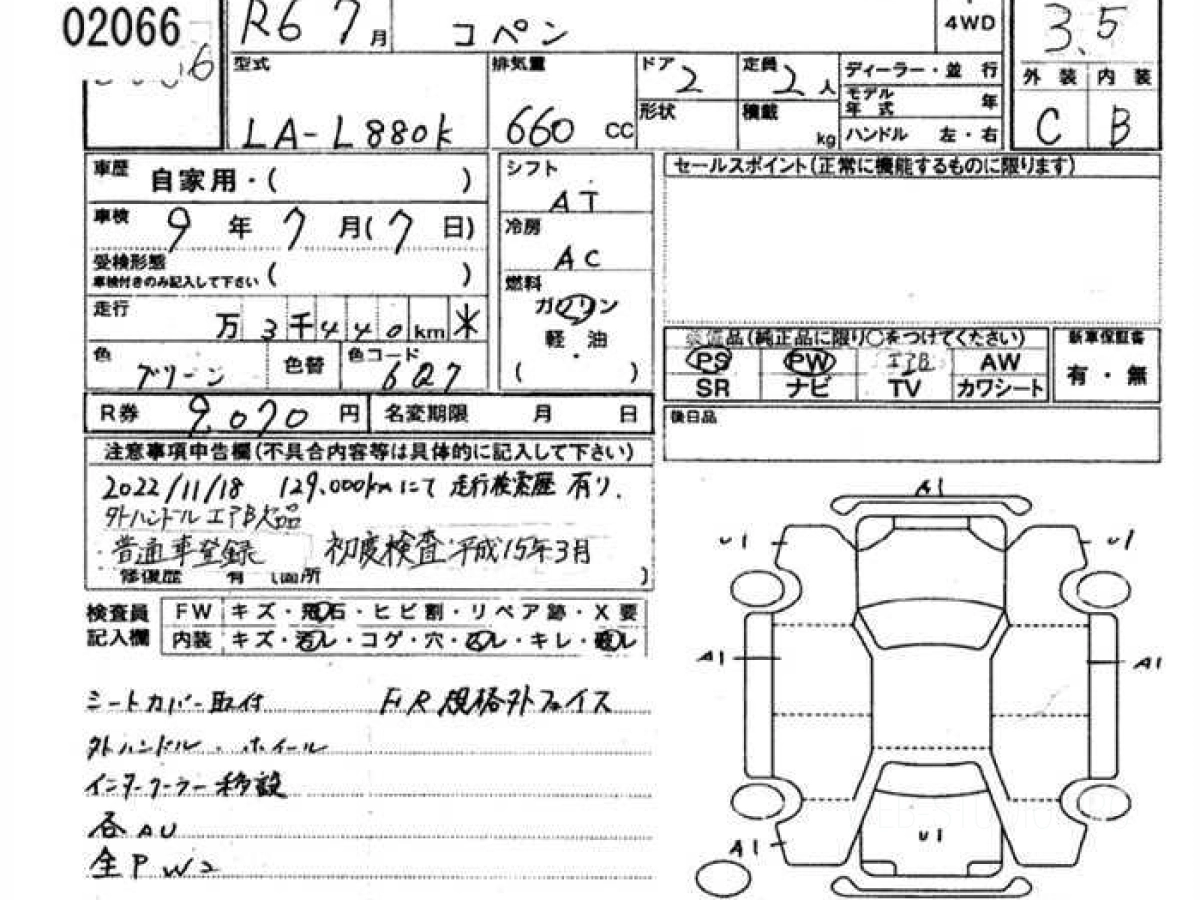 02066
R6 7月
コペン
4WD
3.5
型式
LA-L880K
排気量
660 CC
ドア 2
定員 2人
形状
積載 kg
ディーラー・並行
モデル年式 年
ハンドル 左・右
外装 内装
C B
車歴 自家用・( )
車検 9年 7月(7日)
受検形態
車検付きのみ記入して下さい ( )
走行 万 3千440km *
色 グリーン 色替 色コード 6Q7
シフト
AT
冷房
AC
燃料
ガソリン
軽油
・
( )
セールスポイント(正常に機能するものに限ります)
装備品(純正品に限り○をつけてください)
PS PW エアB AW
SR ナビ TV カワシート
新車保証書
有・無
R券 9,070円 名変期限 月 日
後日品
注意事項申告欄(不具合内容等は具体的に記入して下さい)
2022/11/18 129,000kmにて 走行検索歴 有り.
外ハンドル エアB欠品
普通車登録 初度検査 平成15年3月
修復歴 有 (箇所 )
検査員記入欄
FW キズ・飛石・ヒビ割・リペア跡・X要
内装 キズ・汚レ・コゲ・穴・・キレ・
シートカバー取付 規格外フェイス
外ハンドル・ホイール
インタークーラー移設
各AU
全P W2
A1
U1 U1
A1 A1
A1 U1